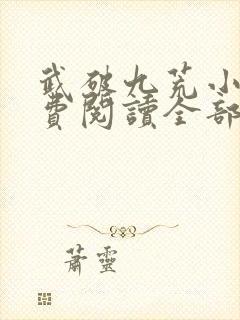 武破九荒小
費閱讀全部
蕭靈